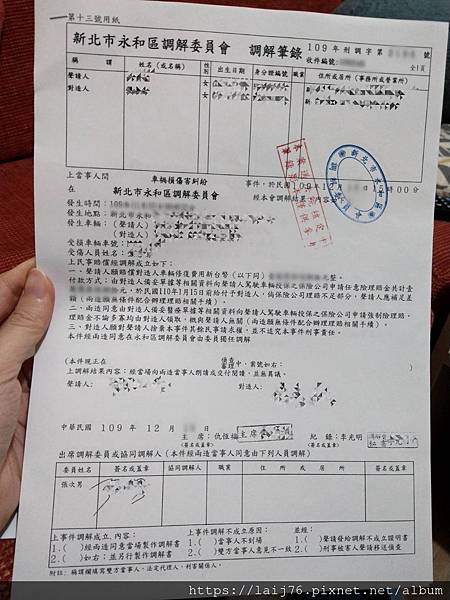 第十三號用紙
新北市永和區調解委員會 調解筆錄 109年刑調字第 號
收件編號: 全1頁
稱謂 姓名(或名稱) 性別 出生日期 身分證編號 職業 住所或居所(事務所或營業所)
聲請人 女
對造人 女
上當事人間 車輛損傷害糾紛 事件,於民國109年1 15時00分
在 新北市永和區調解委員會 經本會調解結果
發生時間:109
發生地點:新北市
發生車輛:(聲請人)
(對造人)
受損車輛車號:
受傷人員姓名:
上民事賠償經調解成立如下:
一、聲請人願賠償對造人車輛修復費用新台幣(以下同) 整。
付款方式:由對造人備妥單據等相關資料向聲請人駕駛車輛投保之保險公司申請任意險理賠金共計壹
元,於民國110年1月15日前給付予對造人,倘保險公司理賠不足部分,聲請人應補足差
額(兩造願無條件配合辦理理賠相關手續)。
二、兩造同意由對造人備妥醫療單據等相關資料向聲請人駕駛車輛投保之保險公司申請強制險理賠,
理賠金不論多寡均由對造人領取,概與聲請人無關(兩造願無條件配合辦理理賠相關手續)。
三、對造人願對聲請人拋棄本件其餘民事求權,並不追究本件刑事責任。
本件經兩造同意在永和區調解委員會由委員獨任調解
(本件現正在 偵查中,案號如右: )
上調解結果內容:經當場向兩造當事人朗讀或交付閱讀,並無異議。
聲請人: 對造人:
中華民國 109 年 12 月
主席:仇恆福 主席 紀錄:李光明
(簽名或蓋章) (簽名或蓋章)
出席調解委員或協同調解人(本件經兩造當事人同意由下列人員調解)
委員姓名 簽名或蓋章 協同調解人 職業 住所或居所 簽名或蓋章
張次男
上事件調解成立,內容: 上事件調解不成立原因: 並經:
1.( )經兩造同意當場製作調解書 1.( )當事人不到場 1.( )聲請發給調解不成立證明書
2.( )如右;並另行製作調解書 2.( )雙方當事人意見不一致 2.( )刑事被害人聲請移送偵查
附註:稱謂欄填寫雙方當事人、法定代理人、利害關係人。
https://laij76.pixnet.net/album